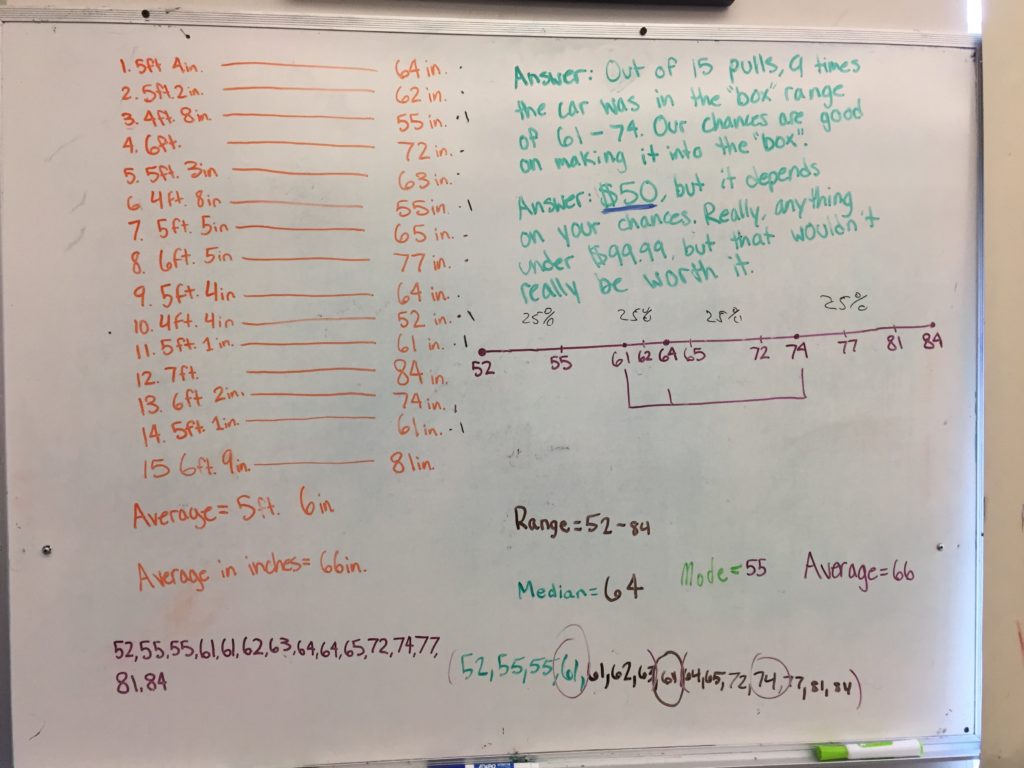 1. 5ft 4in. 64 in.
2. 5ft. 2in. 62 in.
3. 4ft. 8in 55 in.
4. 6ft. 72 in.
5. 5ft. 3in 63 in.
6. 4ft. 8in 55in.
7. 5ft. 5in 65 in.
8. 6ft. 5in 77 in.
9. 5ft. 4in 64 in.
10. 4ft. 4in 52 in.
11. 5ft 1in. 61 in.
12. 7ft. 84 in.
13. 6ft 2in. 74 in.
14. 5ft. 1in. 61in.
15 6ft. 9in. 81in.
Average = 5ft. 6in
Average in inches= 66in.
52,55,55,61,61,62,63,64,64,65,72,74,77,
81,84
Answer: Out of 15 pulls, 9 times
the car was in the "box" range
of 61-74. Our chances are good
on making it into the "box".
Answer: $50, but it depends
on your chances. Really, anything
under $99.99, but that wouldn't
really be worth it.
25% 25% 25% 25%
52 55 61 62 64 65 72 74 77 81 84
Range=52-84
Median=64 Mode=55 Average=66
(52,55,55,61,61,62,63,64,64,65,72,74,77,81,84)
EXPO